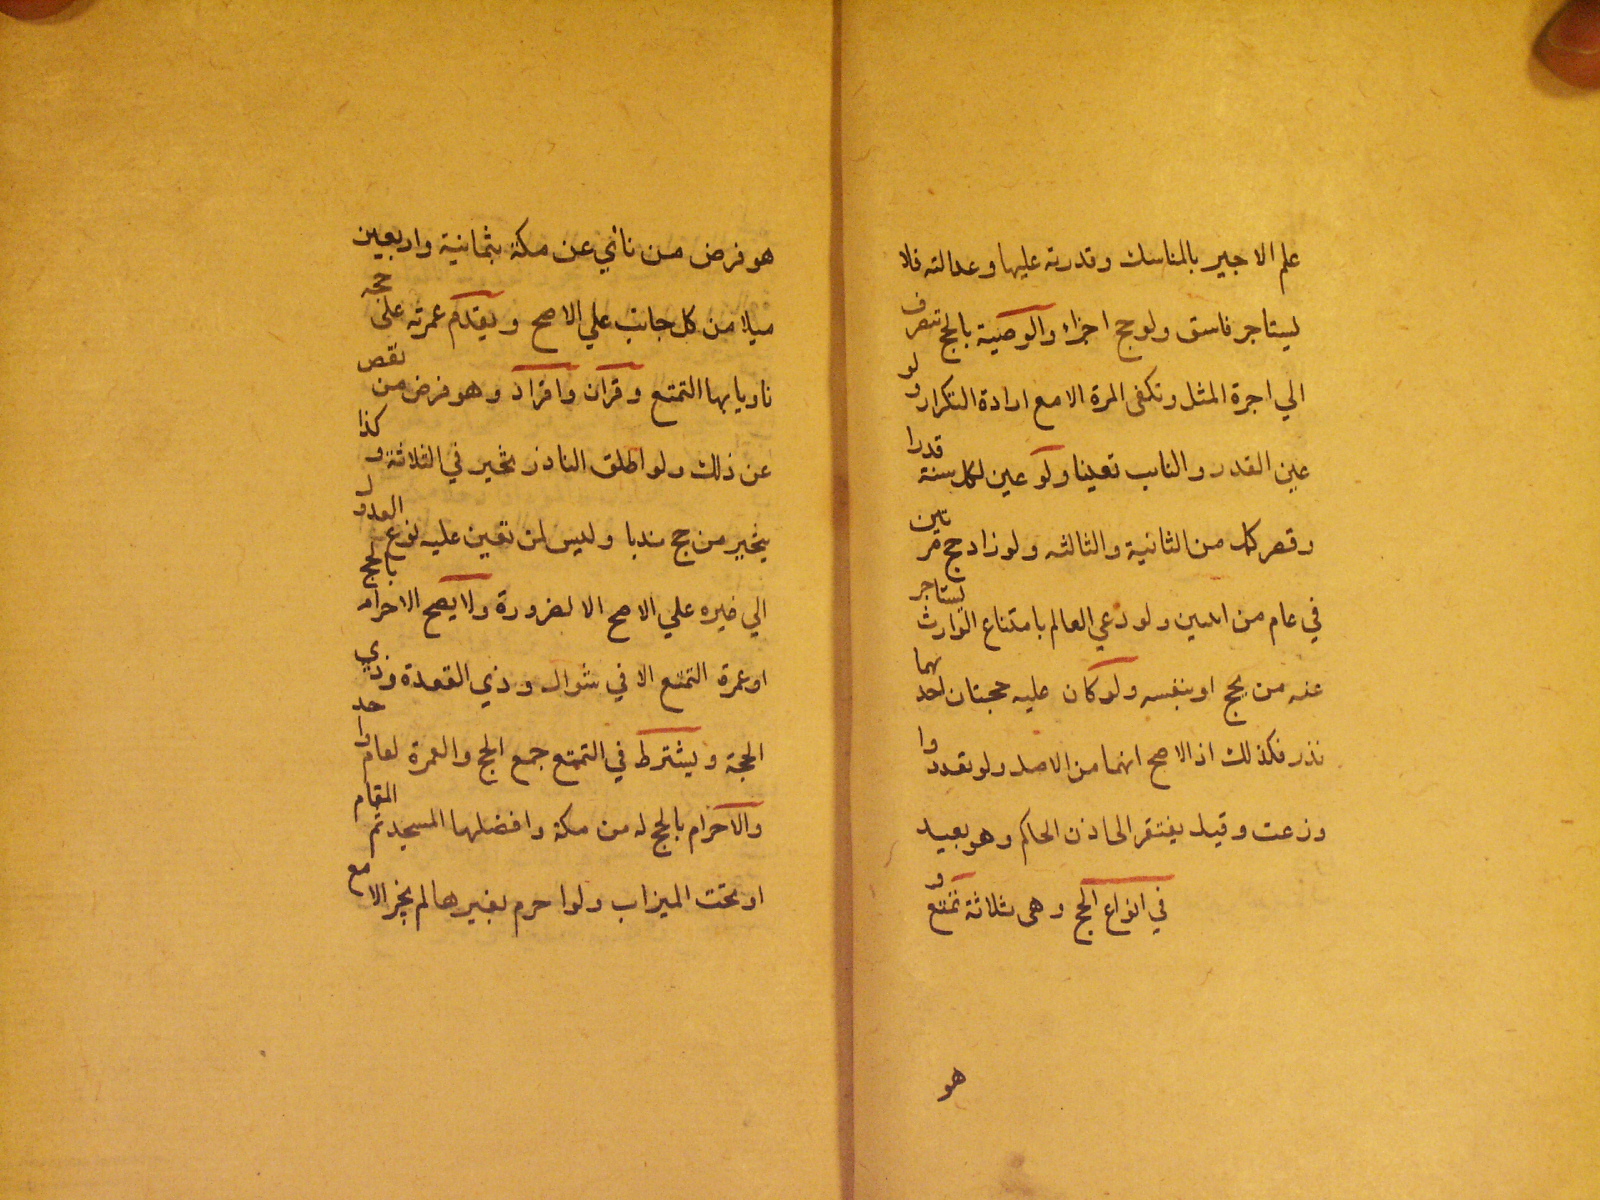 علم الاجير بالمناسك وقدرته عليها وعدالته فلا
ليستاجر فاسق ولو حج اجزاء والوصية بالحج تنصرف
الي اجرة المثل وتكفى المرة الا مع ارادة التكرار ولو
عين القدر والنايب تعينا ولو عين لكل سنة قدرا
وقصر كمل من الثانية والثالثه ولو زاد حج مرتين
في عام من اثنين ولو دعي العالم بامتناع الوارث يستاجر
عنه من يحج او بنفسه ولو كان عليه حجتان احدهما
نذر فكذلك اذ الاصح انهما من الاصل ولو تعددوا
وزعت وقيل يفتقر الى اذن الحاكم وهو بعيد
في انواع الحج وهى ثلاثة تمتع و
هو
هو فرض من نائي عن مكة بثمانية واربعين
ميلا من كل جانب علي الاصح ويقدم عمرته على حجه
ناويا بها التمتع وقران وافراد وهو فرض من نقص
عن ذلك ولو اطلق الناذر تخير في الثلاثة وكذا
يتخير من حج ندبا وليس لمن تعين عليه نوع العدول
الي غيره علي الاصح الا لضرورة ولا يصح الاحرام بالحج
او عمرة التمتع الا في شوال وذي القعدة وذي
الحجة ويشترط في التمتع جمع الحج والعمرة لعام واحد
والاحرام بالحج له من مكة وافضلها المسجد ثم المقام
او تحت الميزاب ولو احرم بغيرها لم يجز الا مع